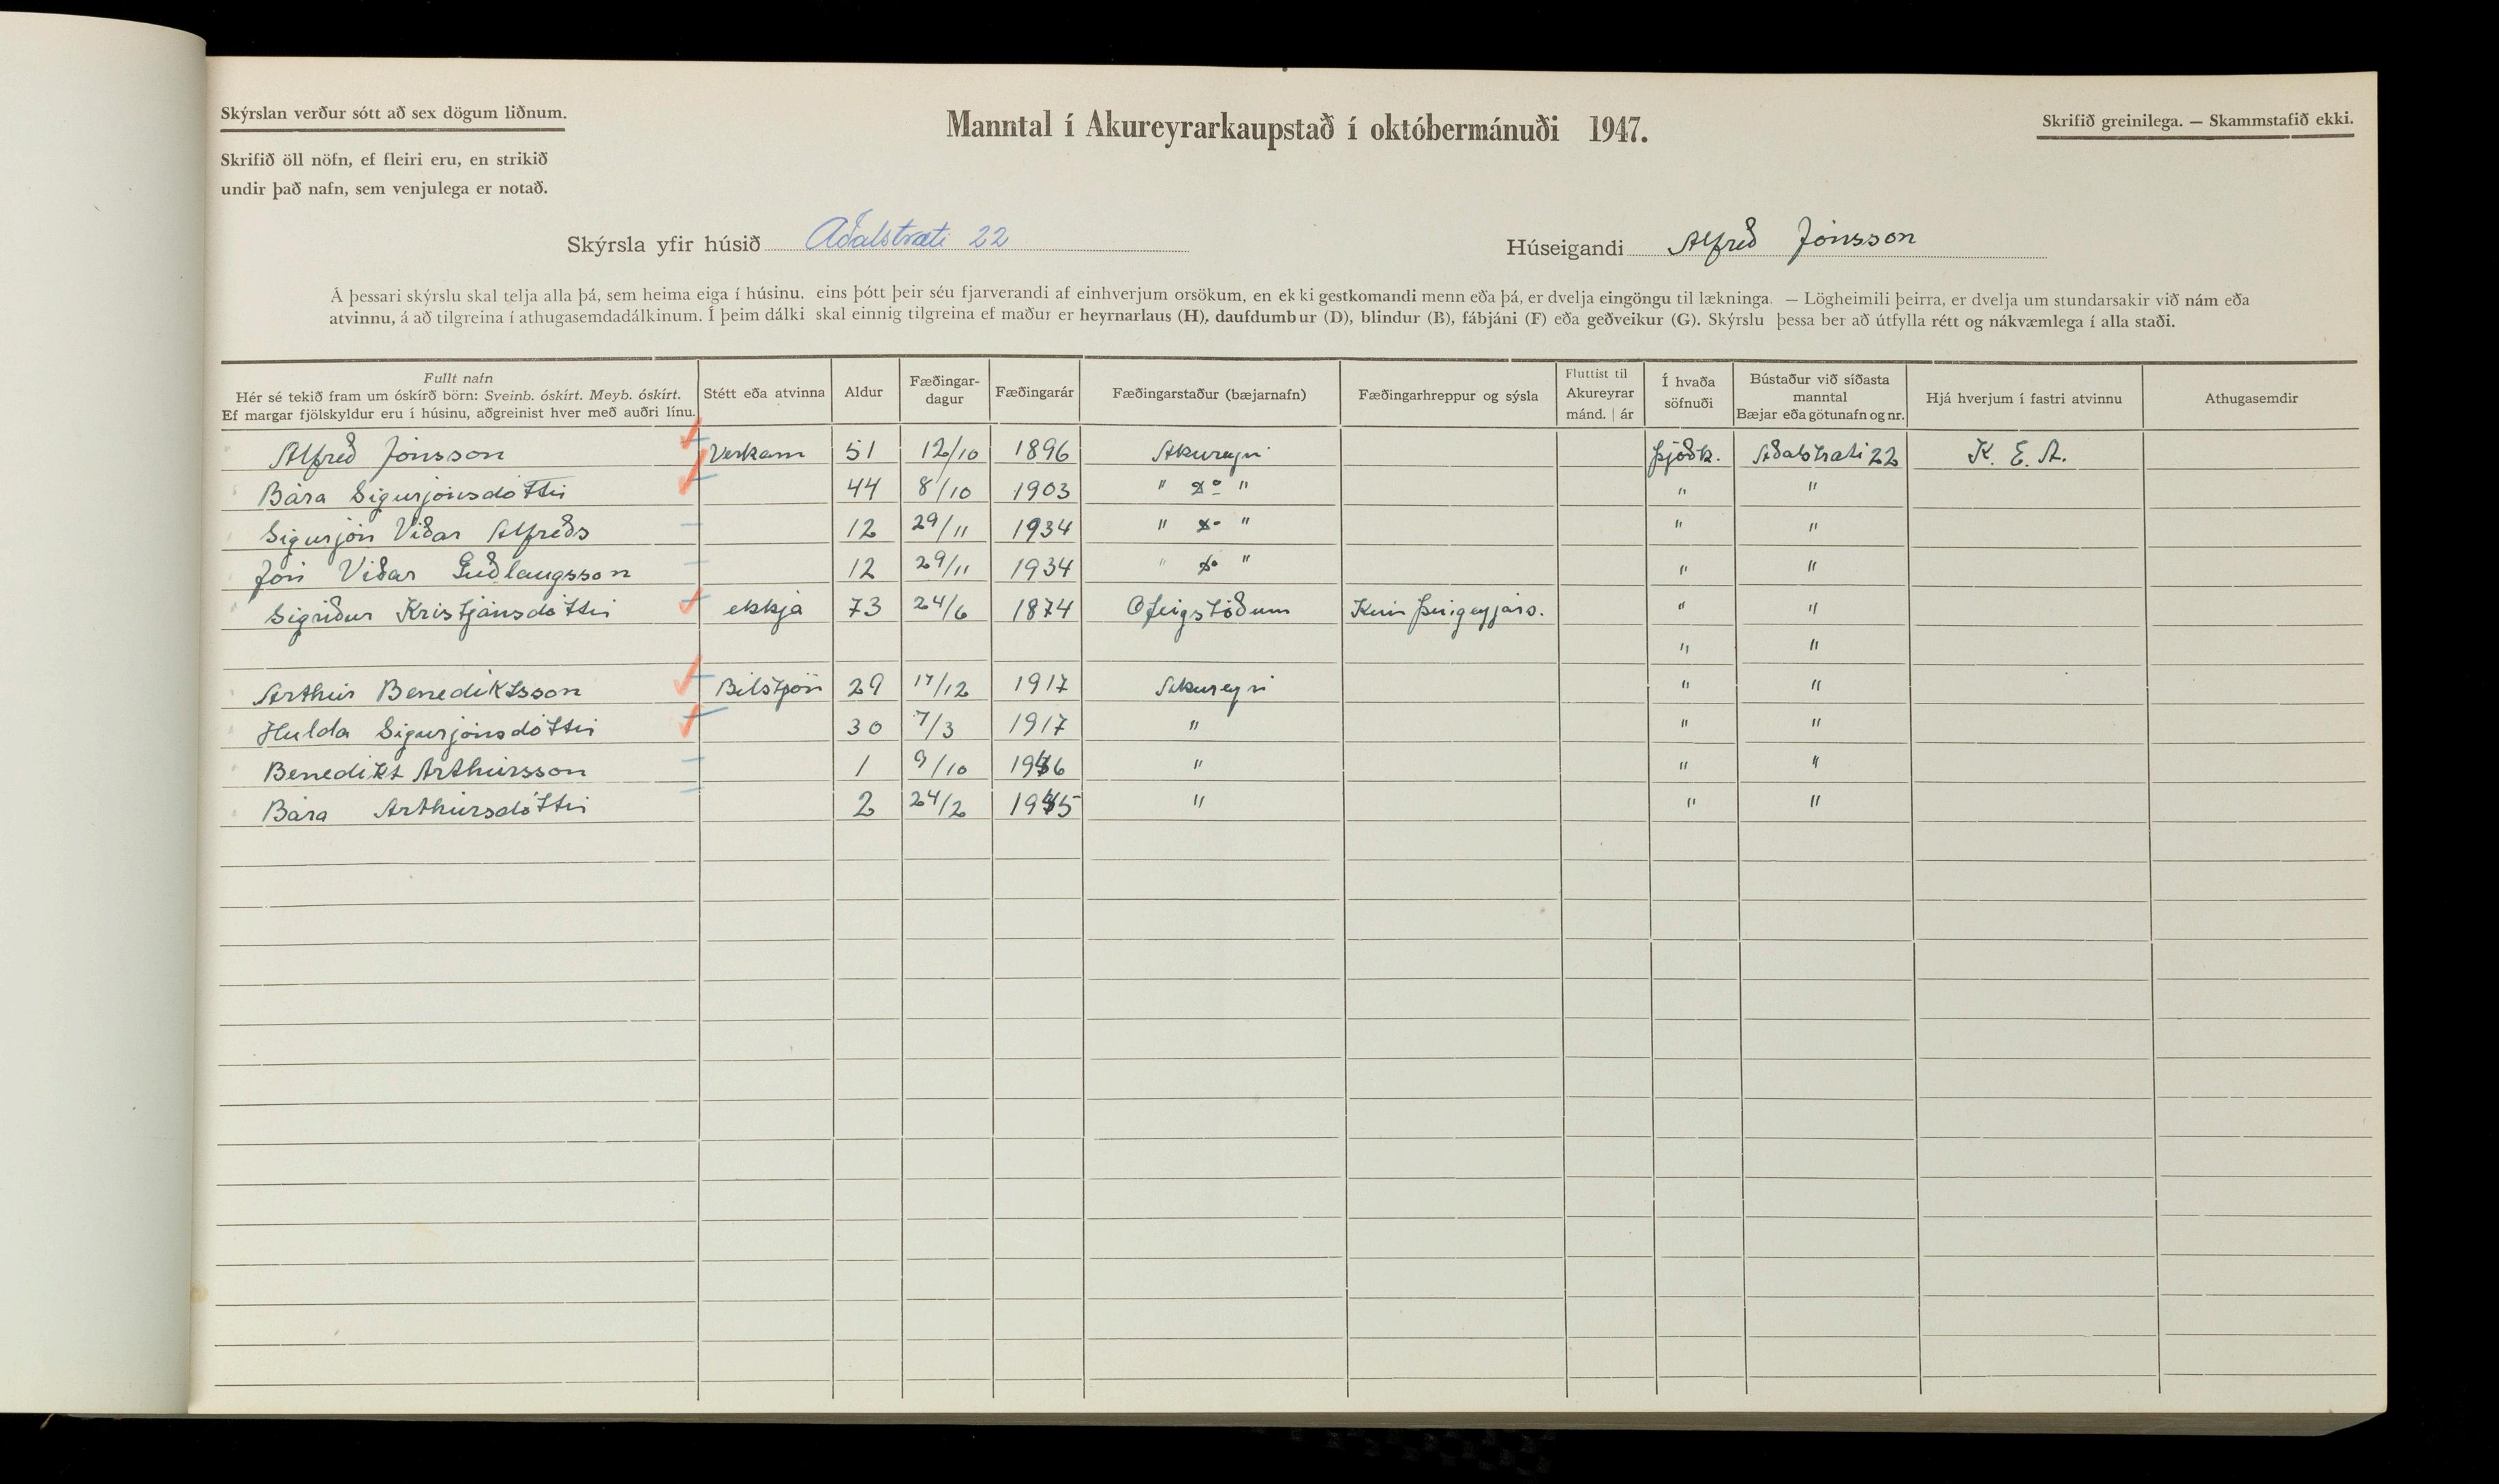 Skýrslan verður sótt að sex dögum liðnum.
Manntal í Akureyrarkaupstað í októbermánuði 1947.
Skrifið greinilega. — Skammstafið ekki.
Skrifið öll nöfn, ef fleiri eru, en strikið
undir það nafn, sem venjulega er notað.
Skýrsla yfir húsið Aðalstræti 22
Húseigandi Alfreð Jónsson
Á þessari skýrslu skal telja alla þá, sem heima eiga í húsinu. eins þótt þeir séu fjarverandi af einhverjum orsökum, en ekki gestkomandi menn eða þá, er dvelja eingöngu til lækninga. — Lögheimili þeirra, er dvelja um stundarsakir við nám eða
atvinnu, á að tilgreina í athugasemdadálkinum. Í þeim dálki skal einnig tilgreina ef maður er heyrnarlaus (H), daufdumbur (D), blindur (B), fábjáni (F) eða geðveikur (G). Skýrslu þessa ber að útfylla rétt og nákvæmlega í alla staði.
Fullt nafn
Hér sé tekið fram um óskírð börn: Sveinb. óskírt. Meyb. óskírt.
Ef margar fjölskyldur eru í húsinu, aðgreinist hver með auðri línu.
Stétt eða atvinna
Aldur
Fæðingar-
dagur
Fæðingarár
Fæðingarstaður (bæjarnafn)
Fæðingarhreppur og sýsla
Fluttist til
Akureyrar
mánd. | ár
Í hvaða
söfnuði
Bústaður við síðasta
manntal
Bæjar eða götunafn og nr.
Hjá hverjum í fastri atvinnu
Athugasemdir
Alfreð Jónsson Verkam 51 12/10 1896 Akureyri Þjóðk. Aðalstræti 22 K. E. A.
Bára Sigurjónsdóttir 44 8/10 1903 " do " " "
Sigurjón Viðar Alfreðs 12 29/11 1934 " do " " "
Jón Viðar Guðlaugsson 12 29/11 1934 " do " " "
Sigríður Kristjánsdóttir ekkja 73 24/6 1874 Ófeigstöðum Kinn Þingeyjars. " "
" "
Arthúr Benediktsson Bílstjóri 29 17/12 1917 Akureyri " "
Hulda Sigurjónsdóttir 30 7/3 1917 " " "
Benedikt Arthúrsson 1 9/10 1946 " " "
Bára Arthúrsdóttir 2 24/2 1945 " " "